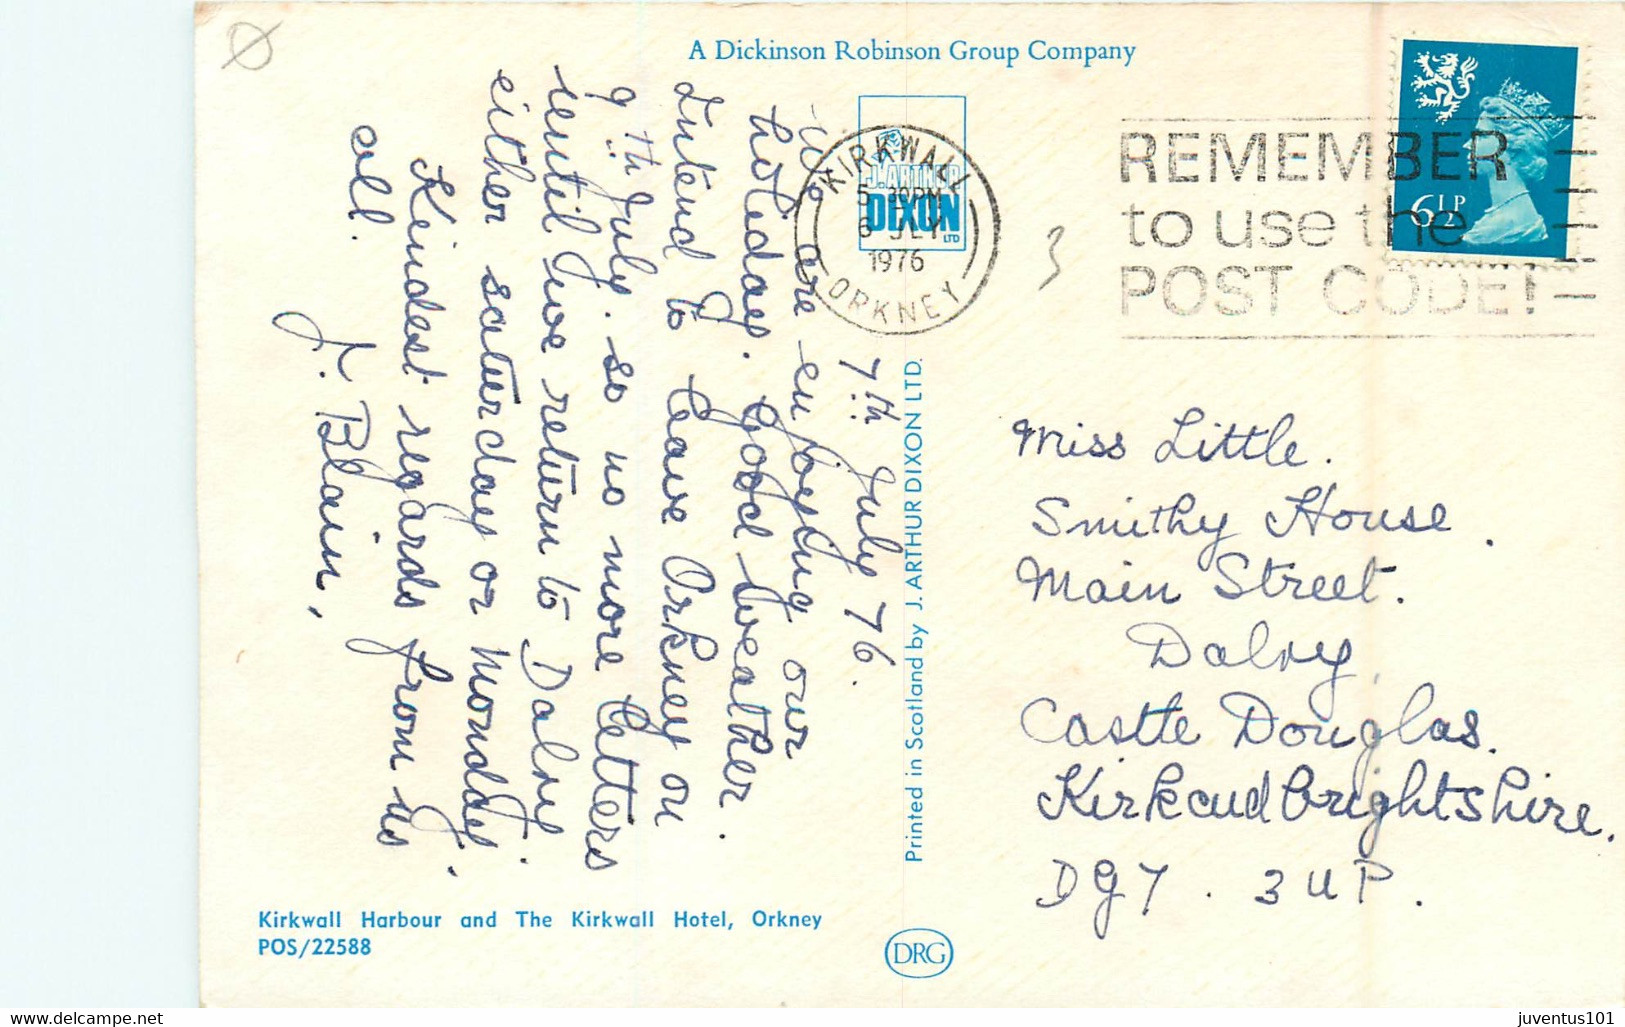 A Dickinson Robinson Group Company
J. ARTHUR
DIXON
LTD
KIRKWALL
5 30PM
6 JLY
1976
ORKNEY
REMEMBER
to use the
POST CODE!
6½P
3
7th July 76.
we are enjoying our
holiday. Good Weather.
Intend to leave Orkney on
9th July. so no more letters
until we return to Dalry.
either saturday or Monday.
Kindest regards from us
all.
J. Blain,
Miss Little.
Smithy House.
Main Street.
Dalry
Castle Douglas.
Kirkcudbrightshire.
DG7. 3UP.
Printed in Scotland by J. ARTHUR DIXON LTD.
Kirkwall Harbour and The Kirkwall Hotel, Orkney
POS/22588
DRG
www.delcampe.net
juventus101